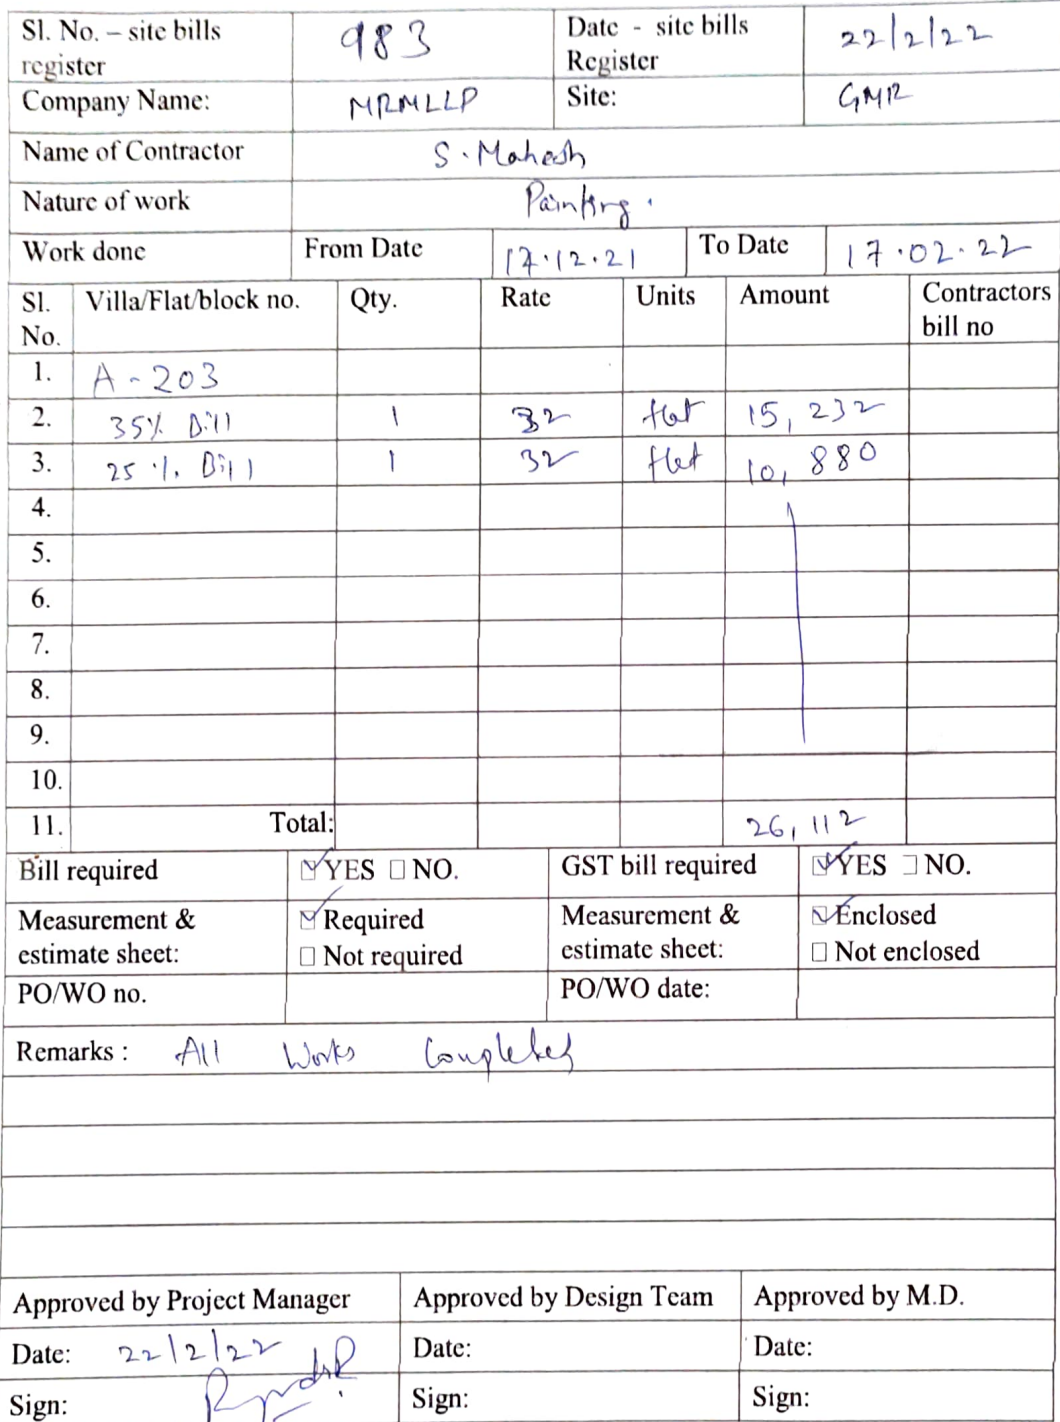 Sl. No. – site bills register 983 Date - site bills Register 22/2/22
Company Name: MRMLLP Site: GMR
Name of Contractor S. Mahesh
Nature of work Painting.
Work done From Date 17.12.21 To Date 17.02.22
Sl. No. Villa/Flat/block no. Qty. Rate Units Amount Contractors bill no
1. A - 203
2. 35% Bill 1 32 flat 15, 232
3. 25 %. Bill 1 32 flat 10, 880
4.
5.
6.
7.
8.
9.
10.
11. Total: 26, 112
Bill required YES NO. GST bill required YES NO.
Measurement & estimate sheet: Required Not required Measurement & estimate sheet: Enclosed Not enclosed
PO/WO no. PO/WO date:
Remarks : All Works Completed
Approved by Project Manager Approved by Design Team Approved by M.D.
Date: 22/2/22 Date: Date:
Sign: Sign: Sign: